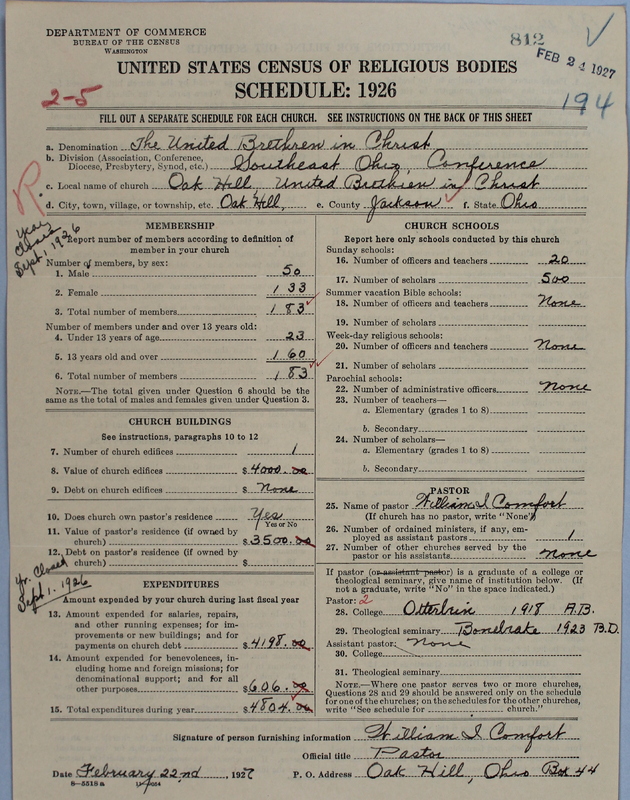 DEPARTMENT OF COMMERCE
BUREAU OF THE CENSUS
WASHINGTON
812
FEB 24 1927
UNITED STATES CENSUS OF RELIGIOUS BODIES
2-5
SCHEDULE: 1926
194
FILL OUT A SEPARATE SCHEDULE FOR EACH CHURCH. SEE INSTRUCTIONS ON THE BACK OF THIS SHEET
a. Denomination The United Brethren in Christ
b. Division (Association, Conference, Diocese, Presbytery, Synod, etc.) Southeast Ohio, Conference
c. Local name of church Oak Hill, United Brethren in Christ
R
d. City, town, village, or township, etc. Oak Hill, e. County Jackson f. State Ohio
Year Closed Sept 1, 1926
MEMBERSHIP
Report number of members according to definition of
member in your church
Number of members, by sex:
1. Male 50
2. Female 133
3. Total number of members 183
Number of members under and over 13 years old:
4. Under 13 years of age 23
5. 13 years old and over 160
6. Total number of members 183
NOTE.—The total given under Question 6 should be
same as the total of males and females given under Question 3.
CHURCH BUILDINGS
See instructions, paragraphs 10 to 12
7. Number of church edifices 1
8. Value of church edifices $4000.00
9. Debt on church edifices $ None
10. Does church own pastor's residence Yes
Yes or No
11. Value of pastor's residence (if owned by
church) $3500.00
12. Debt on pastor's residence (if owned by
church) $
Yr. Closed Sept. 1. 1926
EXPENDITURES
Amount expended by your church during last fiscal year
13. Amount expended for salaries, repairs,
and other running expenses; for im-
provements or new buildings; and for
payments on church debt $4198.00
14. Amount expended for benevolences, in-
cluding home and foreign missions; for
denominational support; and for all
other purposes $606.00
15. Total expenditures during year $4804.00
CHURCH SCHOOLS
Report here only schools conducted by this church
Sunday schools:
16. Number of officers and teachers 20
17. Number of scholars 500
Summer vacation Bible schools:
18. Number of officers and teachers None
19. Number of scholars
Week-day religious schools:
20. Number of officers and teachers None
21. Number of scholars
Parochial schools:
22. Number of administrative officers None
23. Number of teachers—
a. Elementary (grades 1 to 8)
b. Secondary
24. Number of scholars—
a. Elementary (grades 1 to 8)
b. Secondary
PASTOR
25. Name of pastor William I Comfort
(If church has no pastor, write "None")
26. Number of ordained ministers, if any, em-
ployed as assistant pastors 1
27. Number of other churches served by the
pastor or his assistants None
If pastor (or assistant pastor) is a graduate of a college or
theological seminary, give name of institution below. (If
not a graduate, write "No" in the space indicated.)
Pastor: 2
28. College Otterbein 1918 A.B.
29. Theological seminary Bonebrake 1923 B.D.
Assistant pastor: None
30. College
31. Theological seminary
NOTE.—Where one pastor serves two or more churches,
Questions 28 and 29 should be answered only on the schedule
for one of the churches; on the schedules for the other churches,
write "See schedule for church."
Signature of person furnishing information William I Comfort
Official title Pastor
Date February 22nd, 1927 P. O. Address Oak Hill, Ohio Box 44
8—5518 a